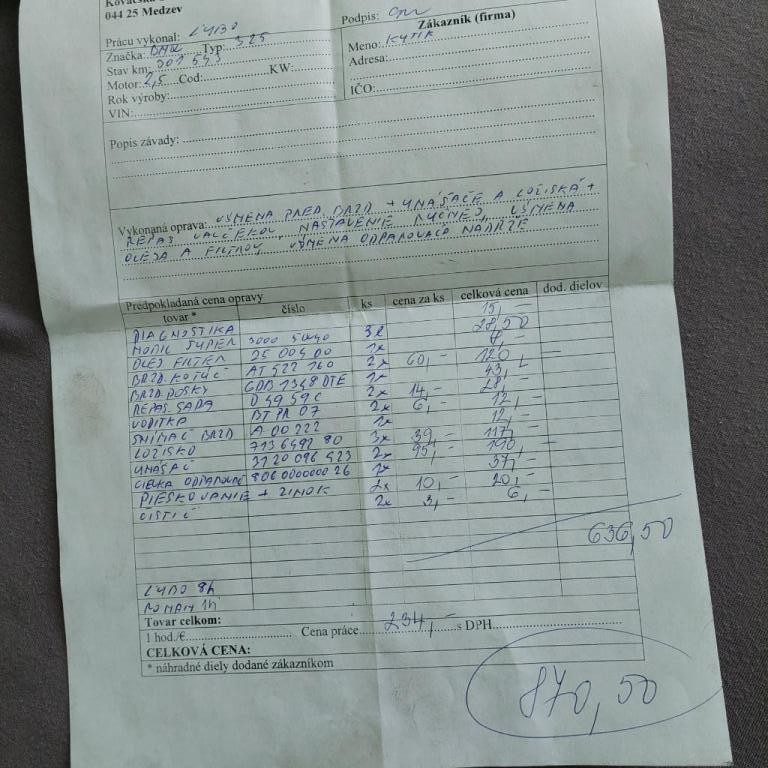 044 25 Medzev
Prácu vykonal: ĽUBO
Podpis:
Značka: BMW Typ: 325
Stav km: 301 543
Motor: 2,5 Cod: KW:
Rok výroby:
VIN:
Zákazník (firma)
Meno: KYTIK
Adresa:
IČO:
Popis závady:
Vykonaná oprava: VÝMENA PRED. BRZD + UNÁŠAČE A LOŽISKÁ +
REPAS VALČEKOV, NASTAVENIE RUČNEJ, VÝMENA
OLEJA A FILTROV, VÝMENA ODPAROVACEJ NÁDRŽE
Predpokladaná cena opravy
tovar * číslo ks cena za ks celková cena dod. dielov
DIAGNOSTIKA 15,-
MOBIL SUPER 3000 5W40 3l 28,50
OLEJ FILTER 25 004 00 1x 8,-
BRZD. KOTÚČ AT 522 160 2x 60,- 120,-
BRZD. DOSKY GDB 1348 DTE 1x 43,-
REPAS. SADA D 4959C 2x 14,- 28,-
VODITKA BT PR 07 2x 6,- 12,-
SNÍMAČ BRZD A 00 222 1x 12,-
LOŽISKO 713 6492 80 3x 39,- 117,-
UNÁŠAČ 3120 096 423 2x 95,- 190,-
CIEVKA 806 0000000 26 1x 37,-
PIESKOVANIE + ZINOK 2x 10,- 20,-
ČISTIČ 2x 3,- 6,-
636,50
ĽUBO 8h
ROMAN 1h
Tovar celkom:
1 hod./€ Cena práce 234,- s DPH
CELKOVÁ CENA:
* náhradné diely dodané zákazníkom
870,50